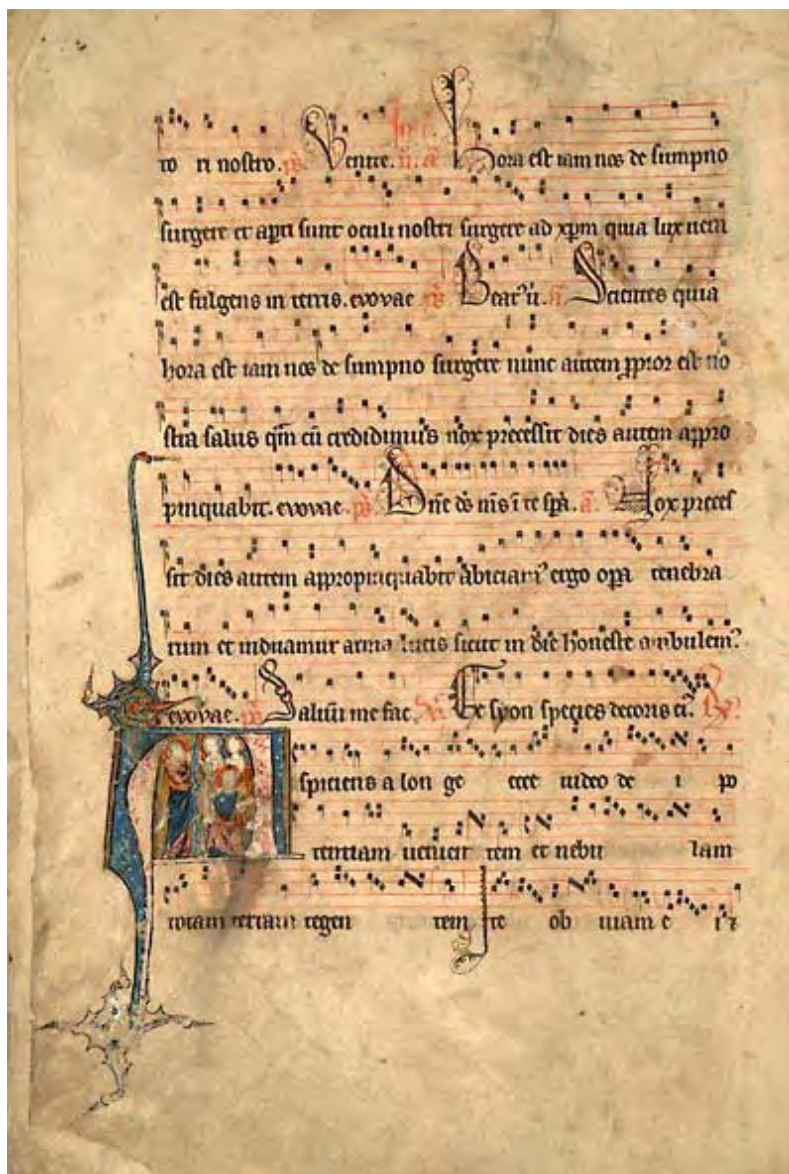 to ri nostro. ps Venite. Hora est iam nos de sumpno
surgere et apti sunt oculi nostri surgere ad xpm quia lux uera
est fulgens in terris. evovae ps Beat' u. Scientes quia
hora est iam nos de sumpno surgere nunc autem ppior est no
stra salus qm cu credidimus nox precessit dies autem appro
pinquabit. evovae. ps Dne ds ms i te spa. a Nox preces
sit dies autem appropinquabit abiciam' ergo opa tenebra
rum et induamur arma lucis sicut in die honeste ambulem'
evovae. ps Saluu me fac. Ex syon species decoris ei'.
Aspiciens a lon ge ecce uideo de i po
tentiam uenien tem et nebu lam
totam terram tegen tem Ite ob uiam e i